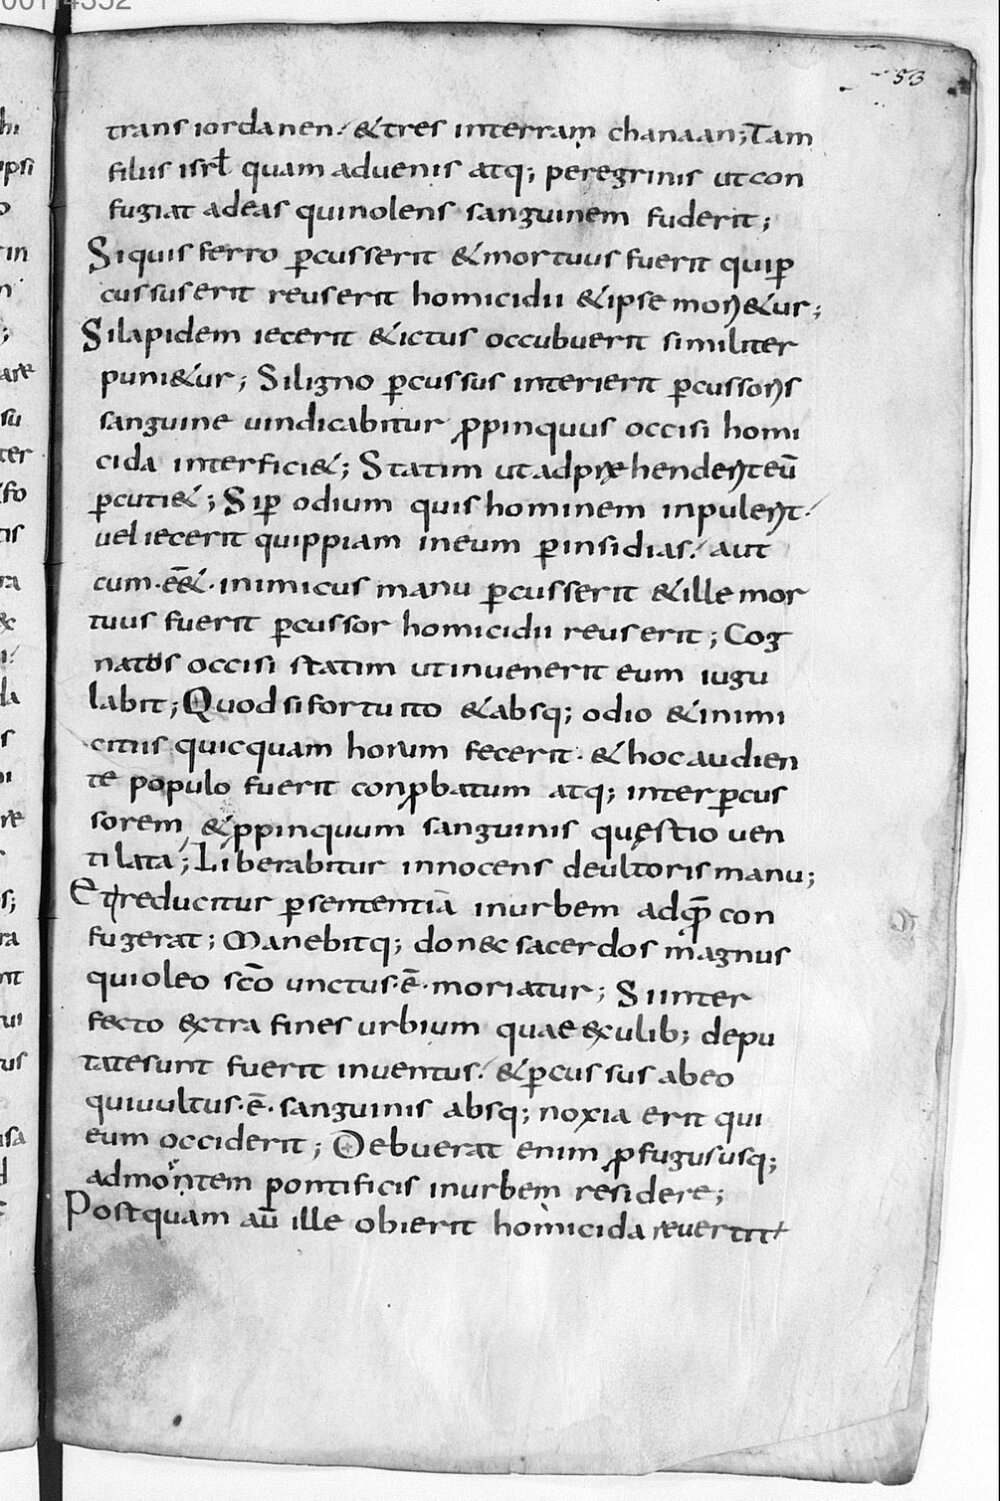 53
trans iordanen · & tres in terram chanaan; Tam
filiis isrł quam aduenis atq; peregrinis ut con
fugiat ad eas qui nolens sanguinem fuderit;
Si quis ferro ꝑcusserit & mortuus fuerit qui ꝑ
cussus erit reus erit homicidii & ipse mori&ur;
Si lapidem iecerit & ictus occubuerit similiter
puni&ur; Si ligno ꝑcussus interierit ꝑcussoris
sanguine uindicabitur ꝓpinquus occisi homi
cida interfici&; Statim ut adpręhenderit eū
ꝑcuti&; Si ꝑ odium quis hominem inpulerit ·
uel iecerit quippiam in eum ꝑ insidias · aut
cum · ēē& · inimicus manu ꝑcusserit & ille mor
tuus fuerit ꝑcussor homicidii reus erit; Cog
natus occisi statim ut inuenerit eum iugu
labit; Quod si fortuito & absq; odio & inimi
citiis quicquam horum fecerit · & hoc audien
te populo fuerit conꝓbatum atq; inter ꝑcus
sorem & ꝓpinquum sanguinis quęstio uen
tilata; Liberabitur innocens de ultoris manu;
Et reducitur ꝑ sententiā in urbem ad quā con
fugerat; Manebitq; donec sacerdos magnus
qui oleo scō unctus · ē · moriatur; Si inter
fecto extra fines urbium quae exulib; depu
tate sunt fuerit inuentus · & ꝑcussus ab eo
qui uultus · ē · sanguinis absq; noxia erit qui
eum occiderit; Debuerat enim ꝓfugus usq;
ad montem pontificis in urbem residere;
Postquam aū ille obierit homicida reuertit